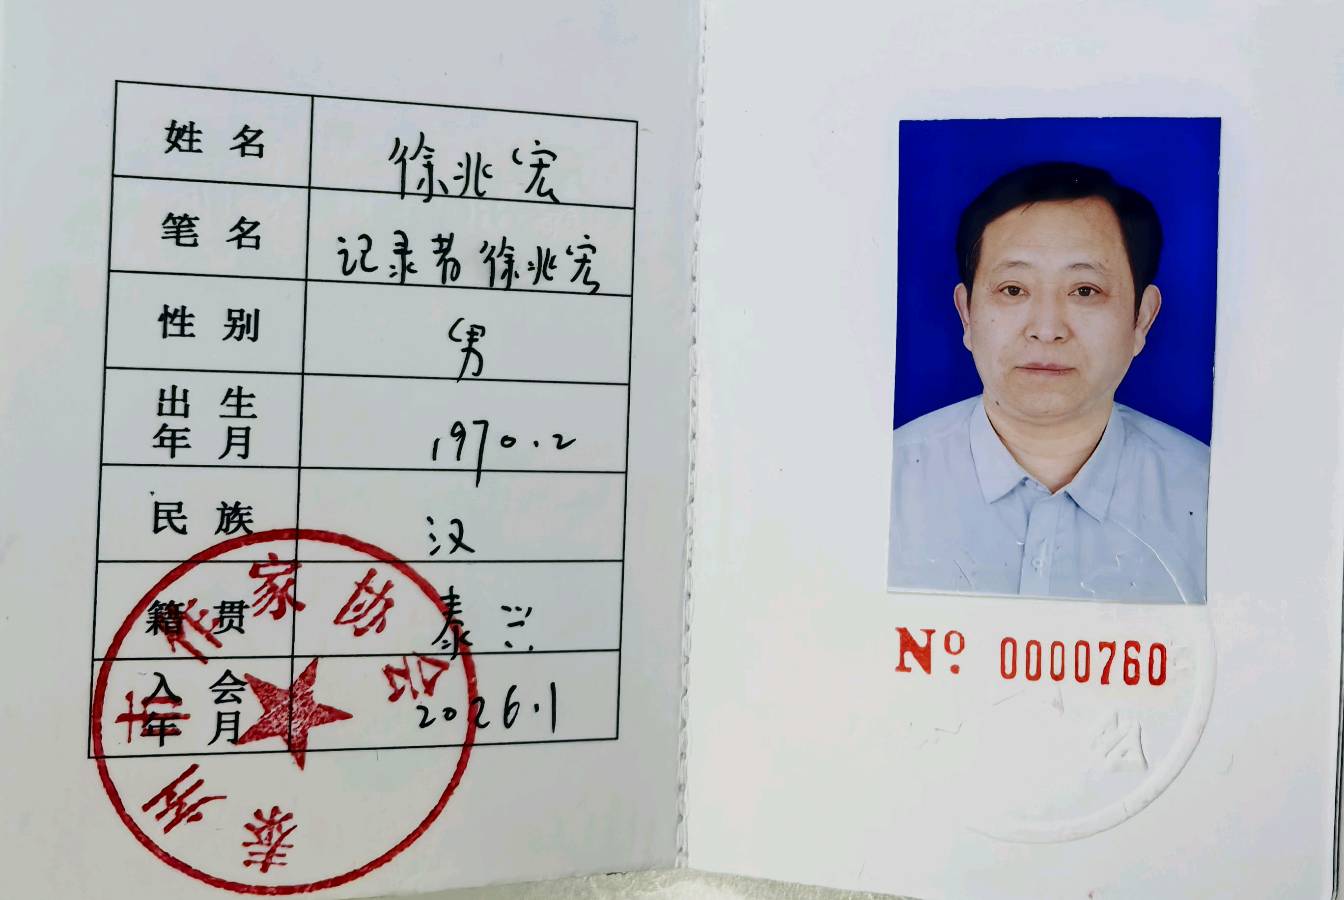 姓名 徐兆宏
笔名 记录者徐兆宏
性别 男
出生年月 1970.2
民族 汉
籍贯 泰兴
入会年月 2026.1
泰州市作家协会
№ 0000760